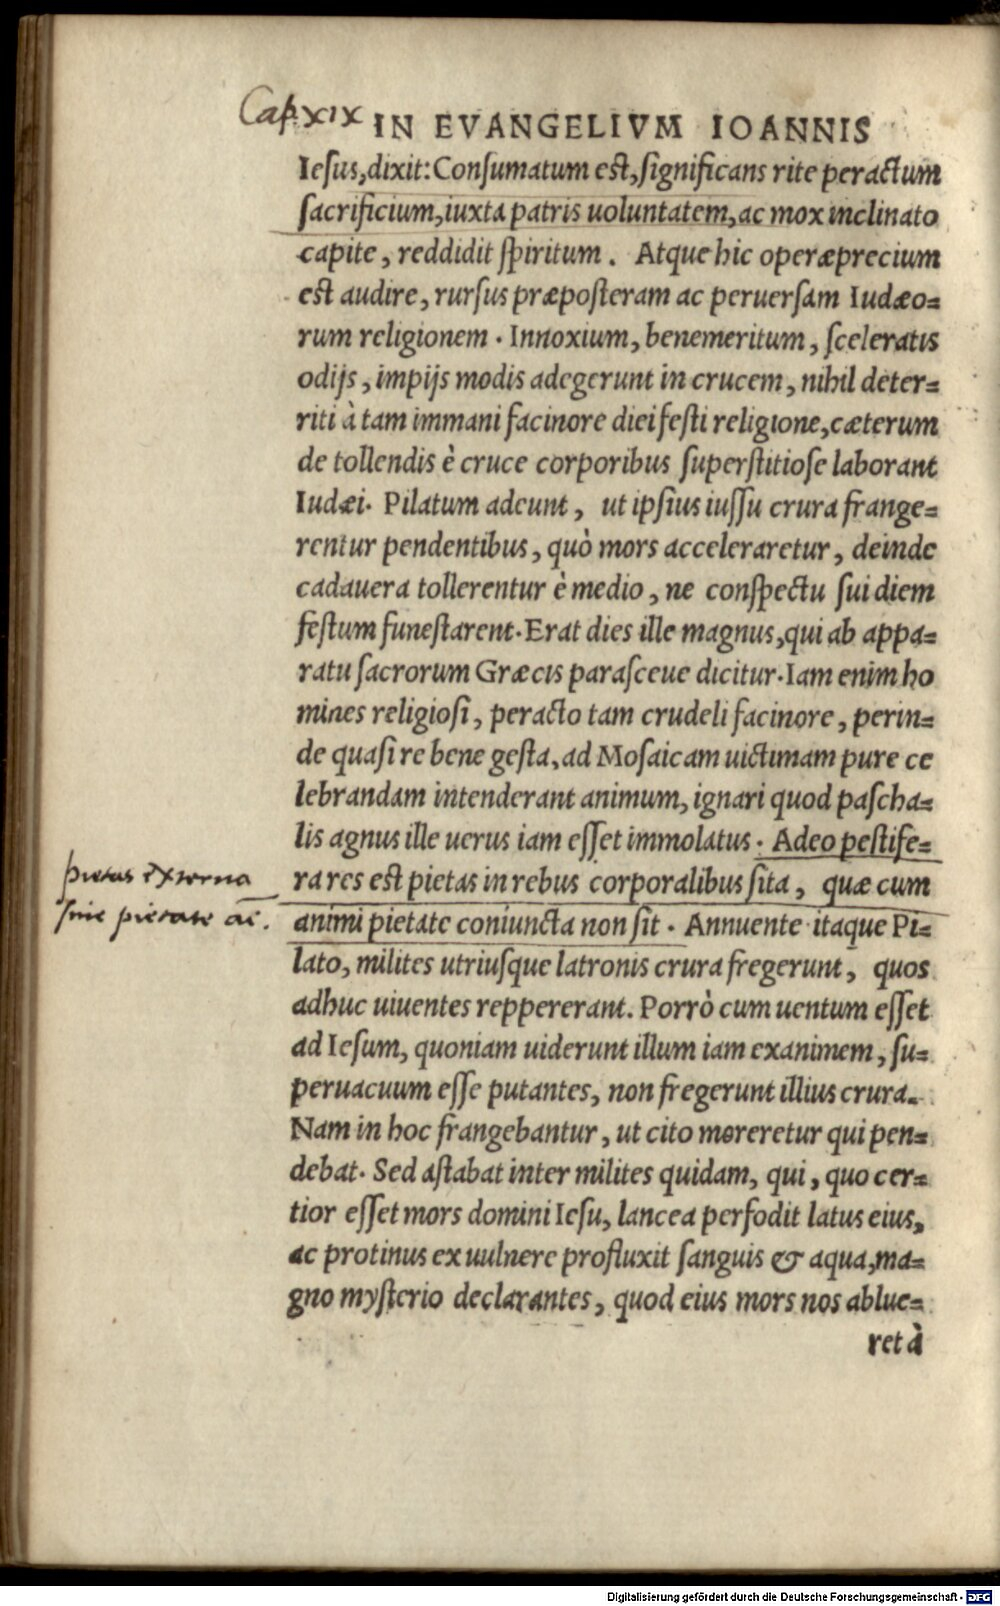 Cap. XIX IN EVANGELIVM IOANNIS
Iesus, dixit: Consumatum est, significans rite peractum
sacrificium, iuxta patris uoluntatem, ac mox inclinato
capite, reddidit spiritum. Atque hic operæprecium
est audire, rursus præposteram ac peruersam Iudæo=
rum religionem. Innoxium, benemeritum, sceleratis
odijs, impijs modis adegerunt in crucem, nihil deter=
riti à tam immani facinore diei festi religione, cæterum
de tollendis è cruce corporibus superstitiose laborant
Iudæi. Pilatum adeunt, ut ipsius iussu crura frange=
rentur pendentibus, quò mors acceleraretur, deinde
cadauera tollerentur è medio, ne conspectu sui diem
festum funestarent. Erat dies ille magnus, qui ab appa=
ratu sacrorum Græcis parasceue dicitur. Iam enim ho
mines religiosi, peracto tam crudeli facinore, perin=
de quasi re bene gesta, ad Mosaicam uictimam pure ce
lebrandam intenderant animum, ignari quod pascha=
lis agnus ille uerus iam esset immolatus. Adeo pestife=
ra res est pietas in rebus corporalibus sita, quæ cum
animi pietate coniuncta non sit. Annuente itaque Pi=
lato, milites utriusque latronis crura fregerunt, quos
adhuc uiuentes reppererant. Porrò cum uentum esset
ad Iesum, quoniam uiderunt illum iam exanimem, su=
peruacuum esse putantes, non fregerunt illius crura.
Nam in hoc frangebantur, ut cito moreretur qui pen=
debat. Sed astabat inter milites quidam, qui, quo cer=
tior esset mors domini Iesu, lancea perfodit latus eius,
ac protinus ex uulnere profluxit sanguis & aqua, ma=
gno mysterio declarantes, quod eius mors nos ablue=
ret à
pietas externa
sine pietate aī.
Digitalisierung gefördert durch die Deutsche Forschungsgemeinschaft - DFG